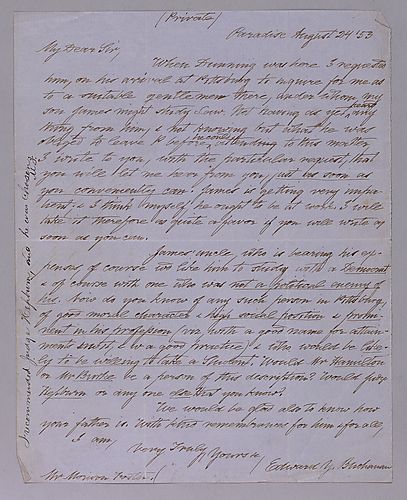 (Private)
Paradise August 24 '53
My Dear Sir,
When Dunning was here I requested
him, on his arrival at Pittsburg to inquire for me as
to a suitable gentlemen there, under whom my
son James might study Law. Not having as yet, heard any
thing from him, & not knowing but what he was
obliged to leave P. before attending to this matter,
I write to you, with the particular request, that
you will let me hear from you, just as soon as
you conveniently can. James is getting very impa-
tient: & I think myself, he ought to be at work. I will
take it therefore as quite a favor if you will write as
soon as you can.
James' uncle, who is bearing his ex-
penses, of course would like him to study with a Democrat
& of course with one who was not a political enemy of
his. Now do you know of any such person in Pittsburg,
of good moral character & high social position & promi-
nent in his profession (viz, with a good name for attain-
ments & with a good practice) & who would be like-
ly to be willing to take a student? Would Mr Hamilton
or Mr be a person of this description? Would Judge
Hepburn or any one else that you know?
We would be glad also to know how
your father is. With kind remembrances for him & for all,
I am,
Very Truly Yours &c,
Edward Y. Buchanan
Mr. Morison Foster.
I recommended Judge Hepburn and he was chosen